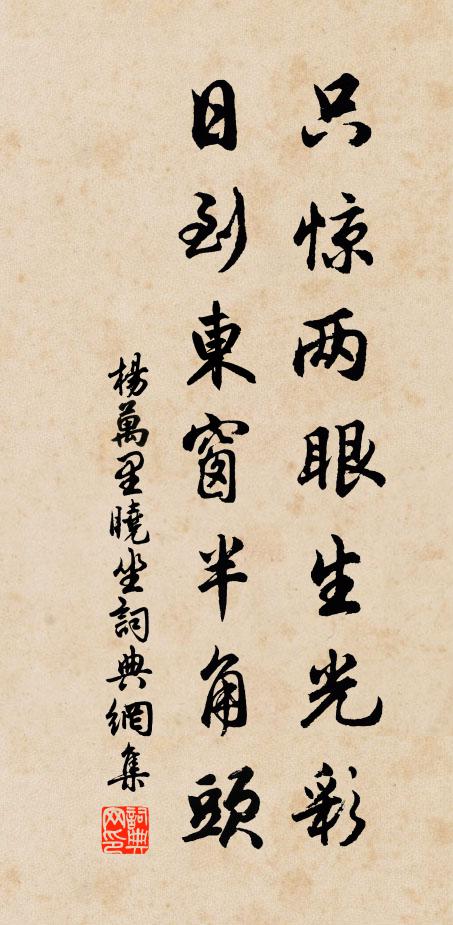 只惊两眼生光彩
日到東窗半角頭
楊萬里曉坐詞典網集
詞典网印